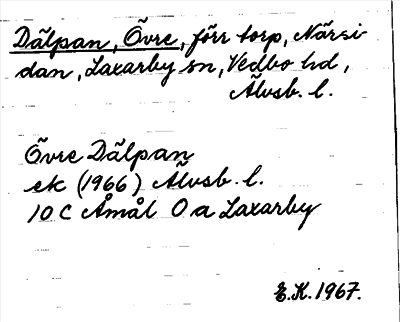 Dälpan, Övre, förr torp, Närsi
dan, Laxarby sn, Vedbo hd,
Älvsb. l.
Övre Dälpan
ek (1966) Älvsb. l.
10 C Åmål O a Laxarby
E.K. 1967.